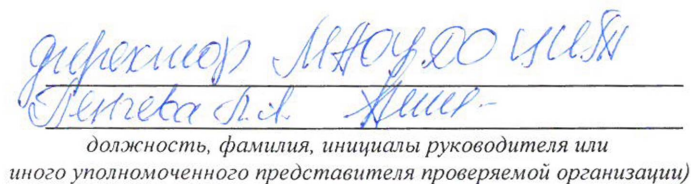 директор МАОУ ДО ЦИТ
Пенчева Л.А.
должность, фамилия, инициалы руководителя или
иного уполномоченного представителя проверяемой организации)